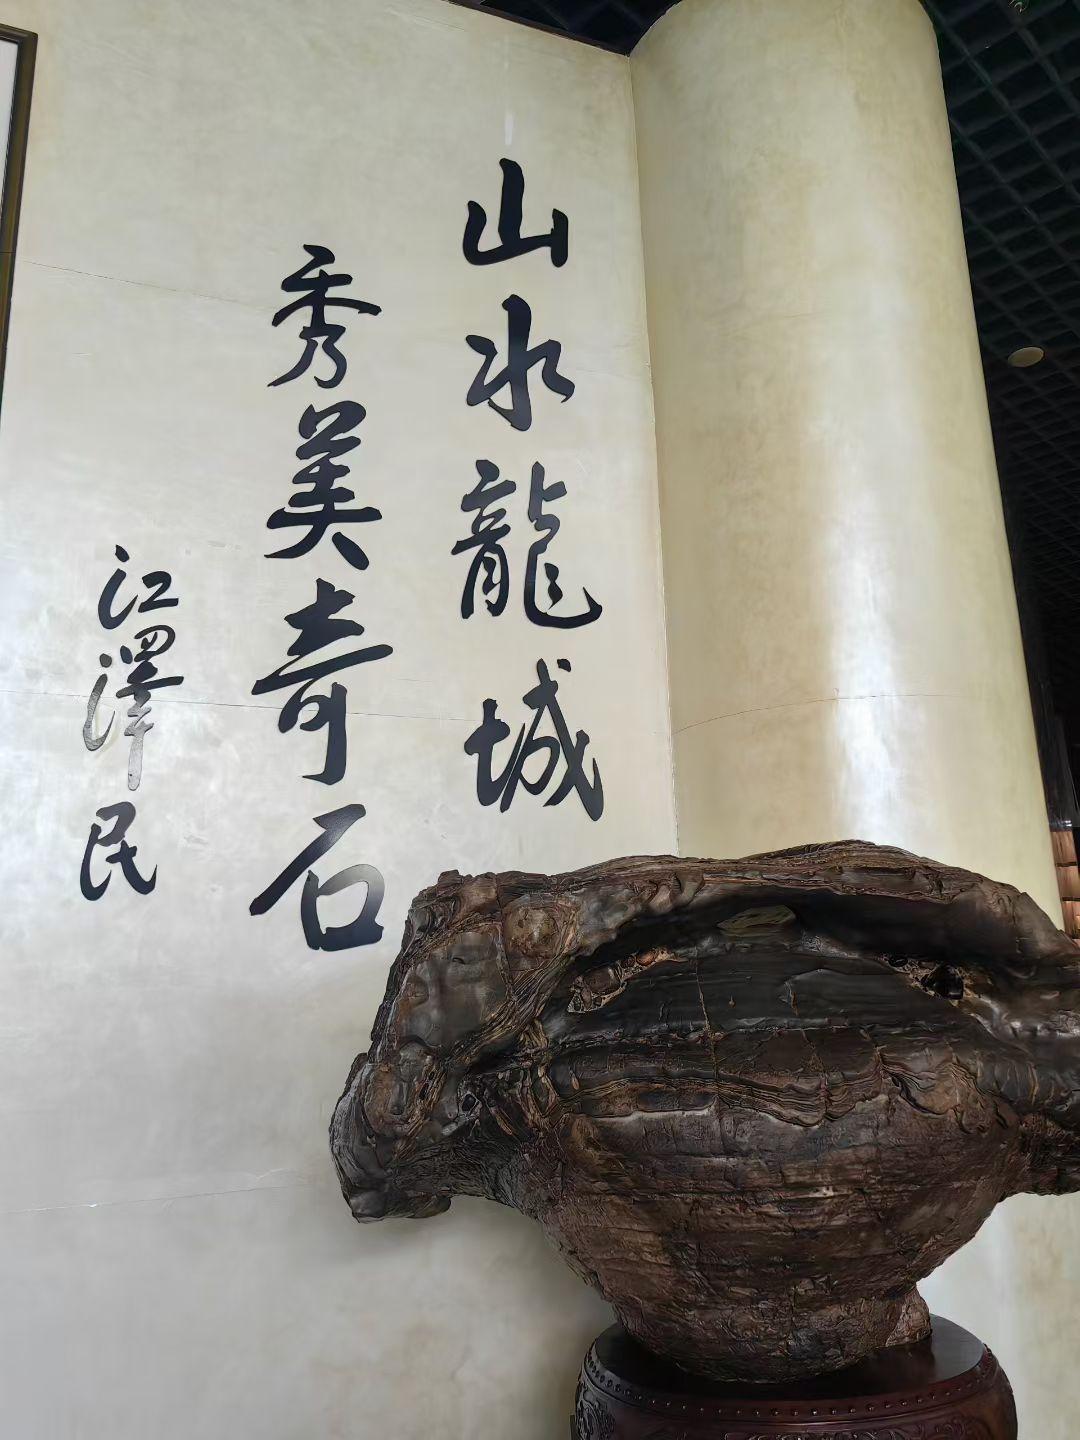 山水龍城
秀美奇石
江澤民